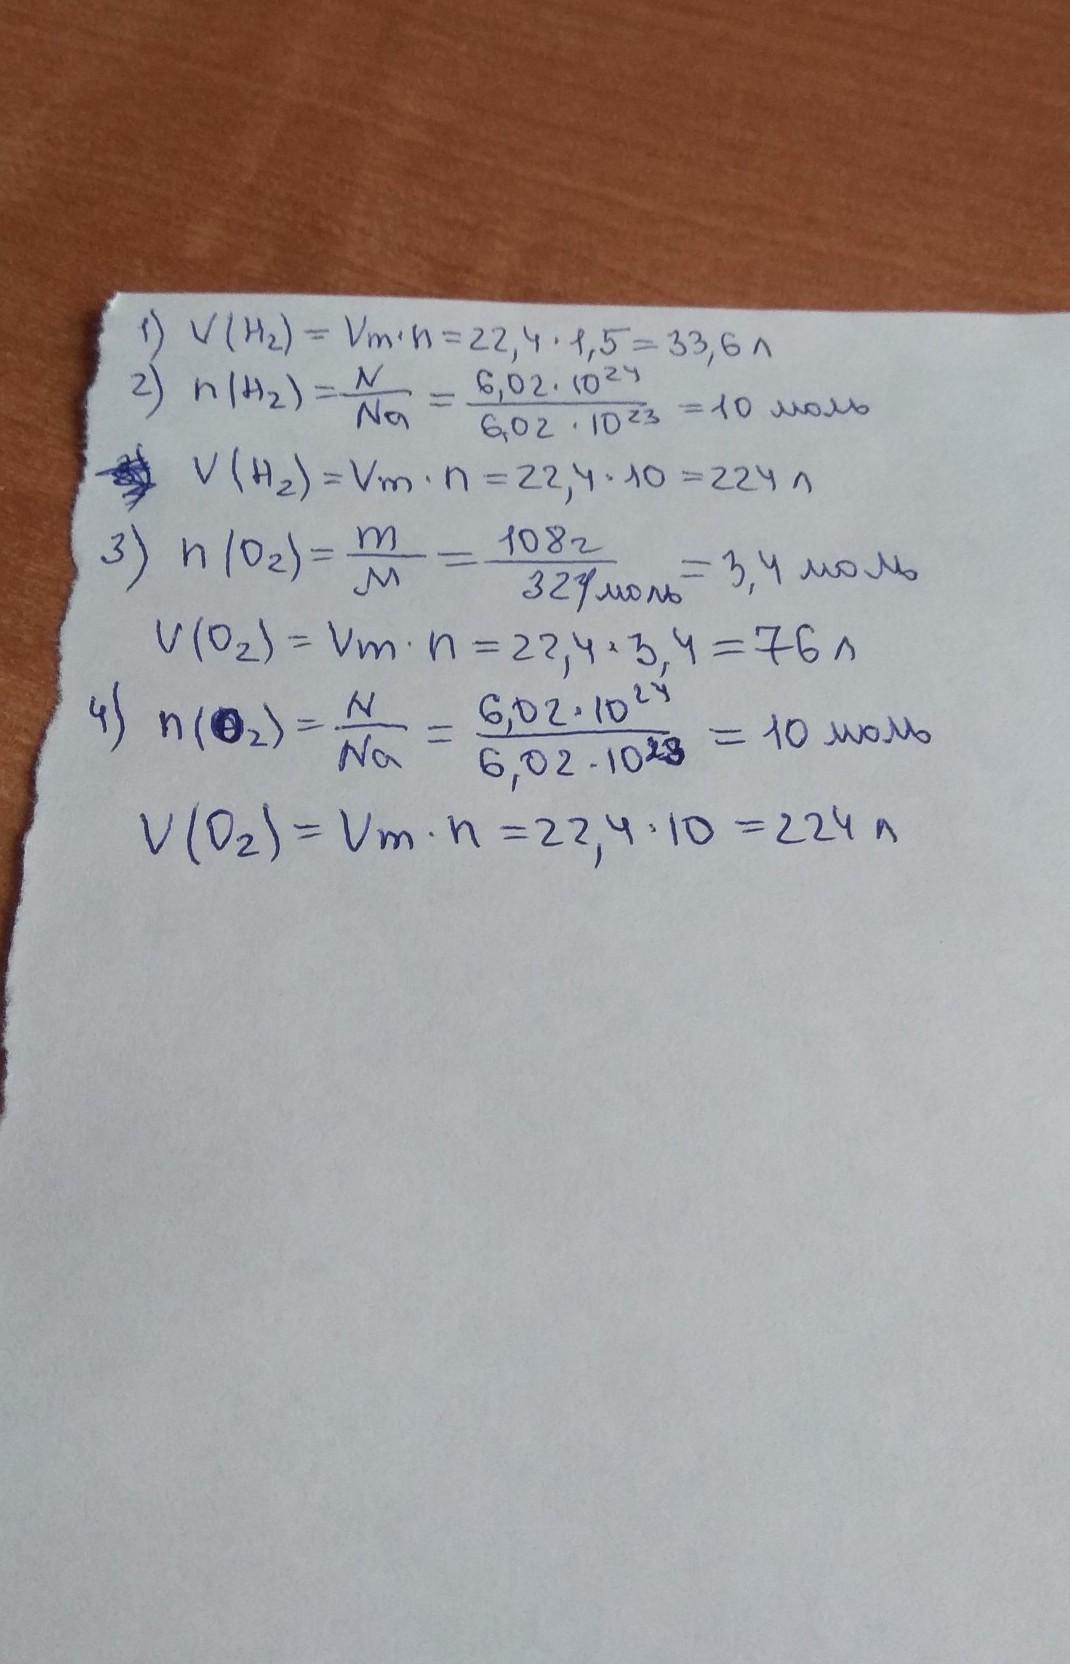 1) V(H₂) = Vm·n = 22,4 · 1,5 = 33,6 л
2) n(H₂) = N/Na = 6,02·10²⁴/6,02·10²³ = 10 моль
V(H₂) = Vm·n = 22,4·10 = 224 л
3) n(O₂) = m/M = 108г/32г/моль = 3,4 моль
V(O₂) = Vm·n = 22,4·3,4 = 76 л
4) n(O₂) = N/Na = 6,02·10²⁴/6,02·10²³ = 10 моль
V(O₂) = Vm·n = 22,4·10 = 224 л